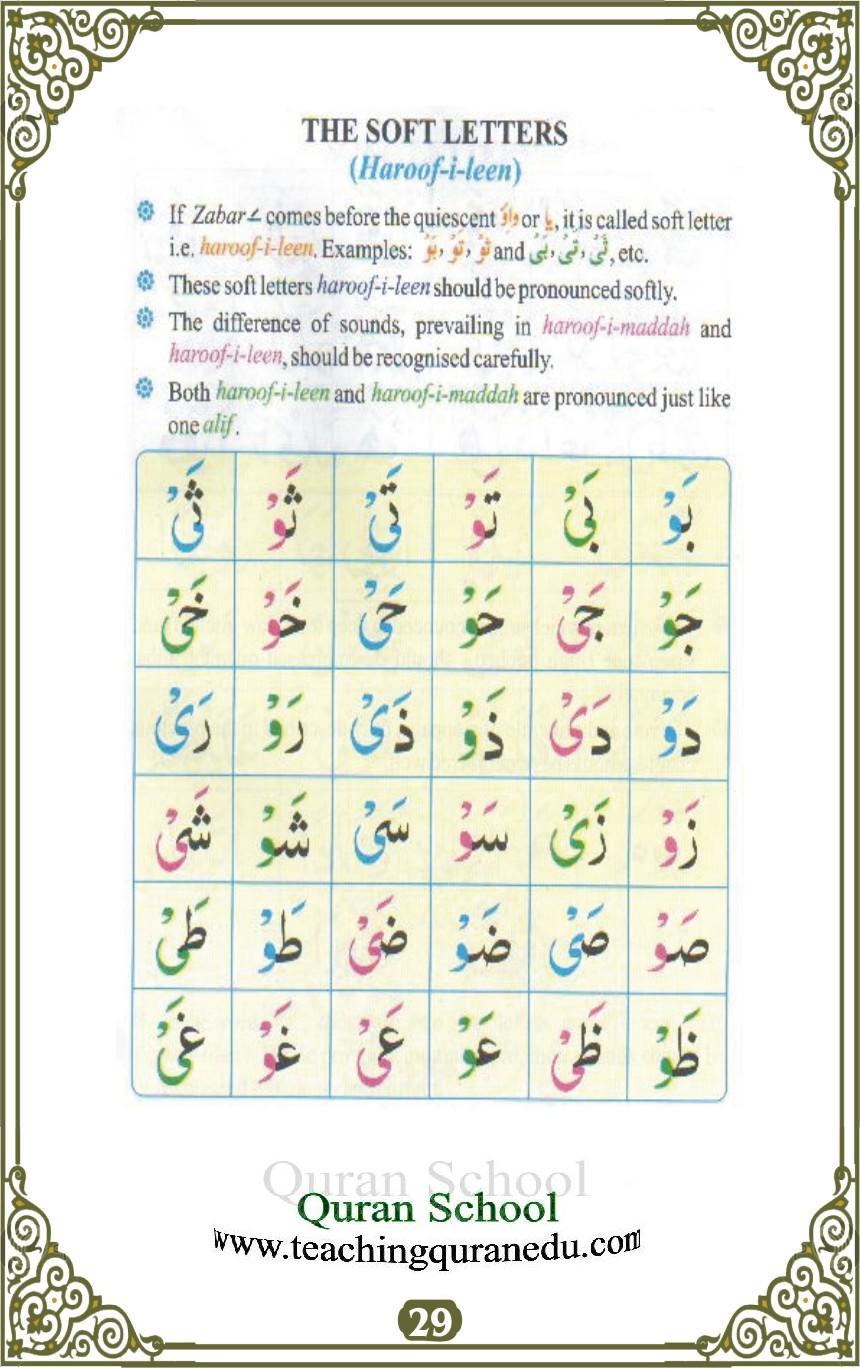 THE SOFT LETTERS
(Haroof-i-leen)
If Zabar َ comes before the quiescent وَاوْ or یا, it is called soft letter
i.e. haroof-i-leen. Examples: بَوْ، تَوْ، ثَوْ and بَیْ، تَیْ، ثَیْ, etc.
These soft letters haroof-i-leen should be pronounced softly.
The difference of sounds, prevailing in haroof-i-maddah and
haroof-i-leen, should be recognised carefully.
Both haroof-i-leen and haroof-i-maddah are pronounced just like
one alif.
بَوْ بَیْ تَوْ تَیْ ثَوْ ثَیْ
جَوْ جَیْ حَوْ حَیْ خَوْ خَیْ
دَوْ دَیْ ذَوْ ذَیْ رَوْ رَیْ
زَوْ زَیْ سَوْ سَیْ شَوْ شَیْ
صَوْ صَیْ ضَوْ ضَیْ طَوْ طَیْ
ظَوْ ظَیْ عَوْ عَیْ غَوْ غَیْ
Quran School
Quran School
www.teachingquranedu.com
29